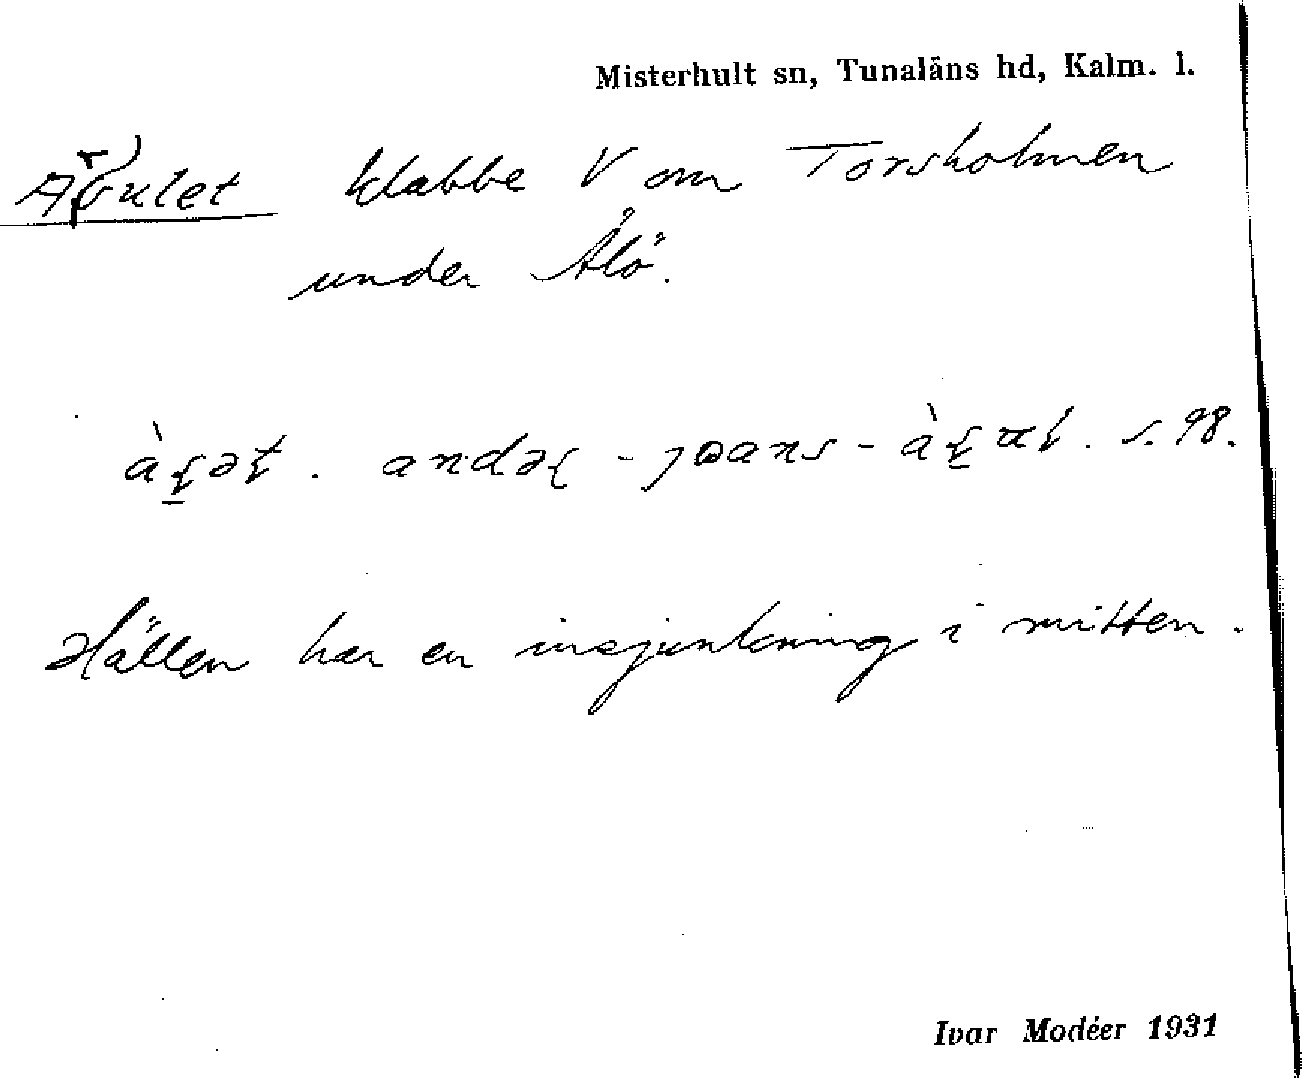 Misterhult sn, Tunaläns hd, Kalm. l.
klabbe V om Torsholmen
under Ålö.
s. 98.
Hällen har en insjunkning i mitten.
Ivar Modéer 1931